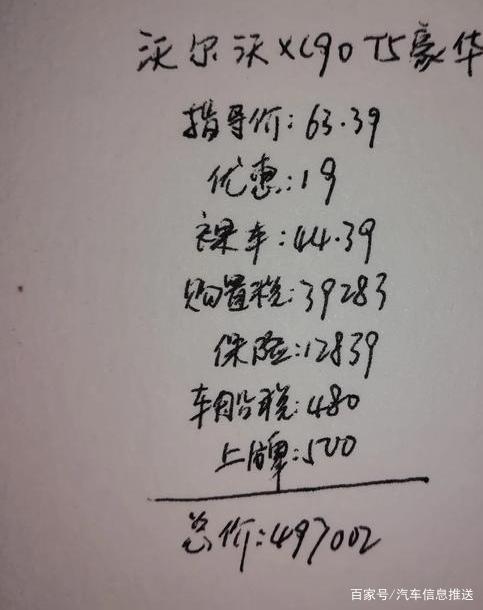 沃尔沃XC90T5豪华
指导价:63.39
优惠:19
裸车:44.39
购置税:39283
保险:12839
车船税:480
上牌:500
总价:497002
百家号/汽车信息推送